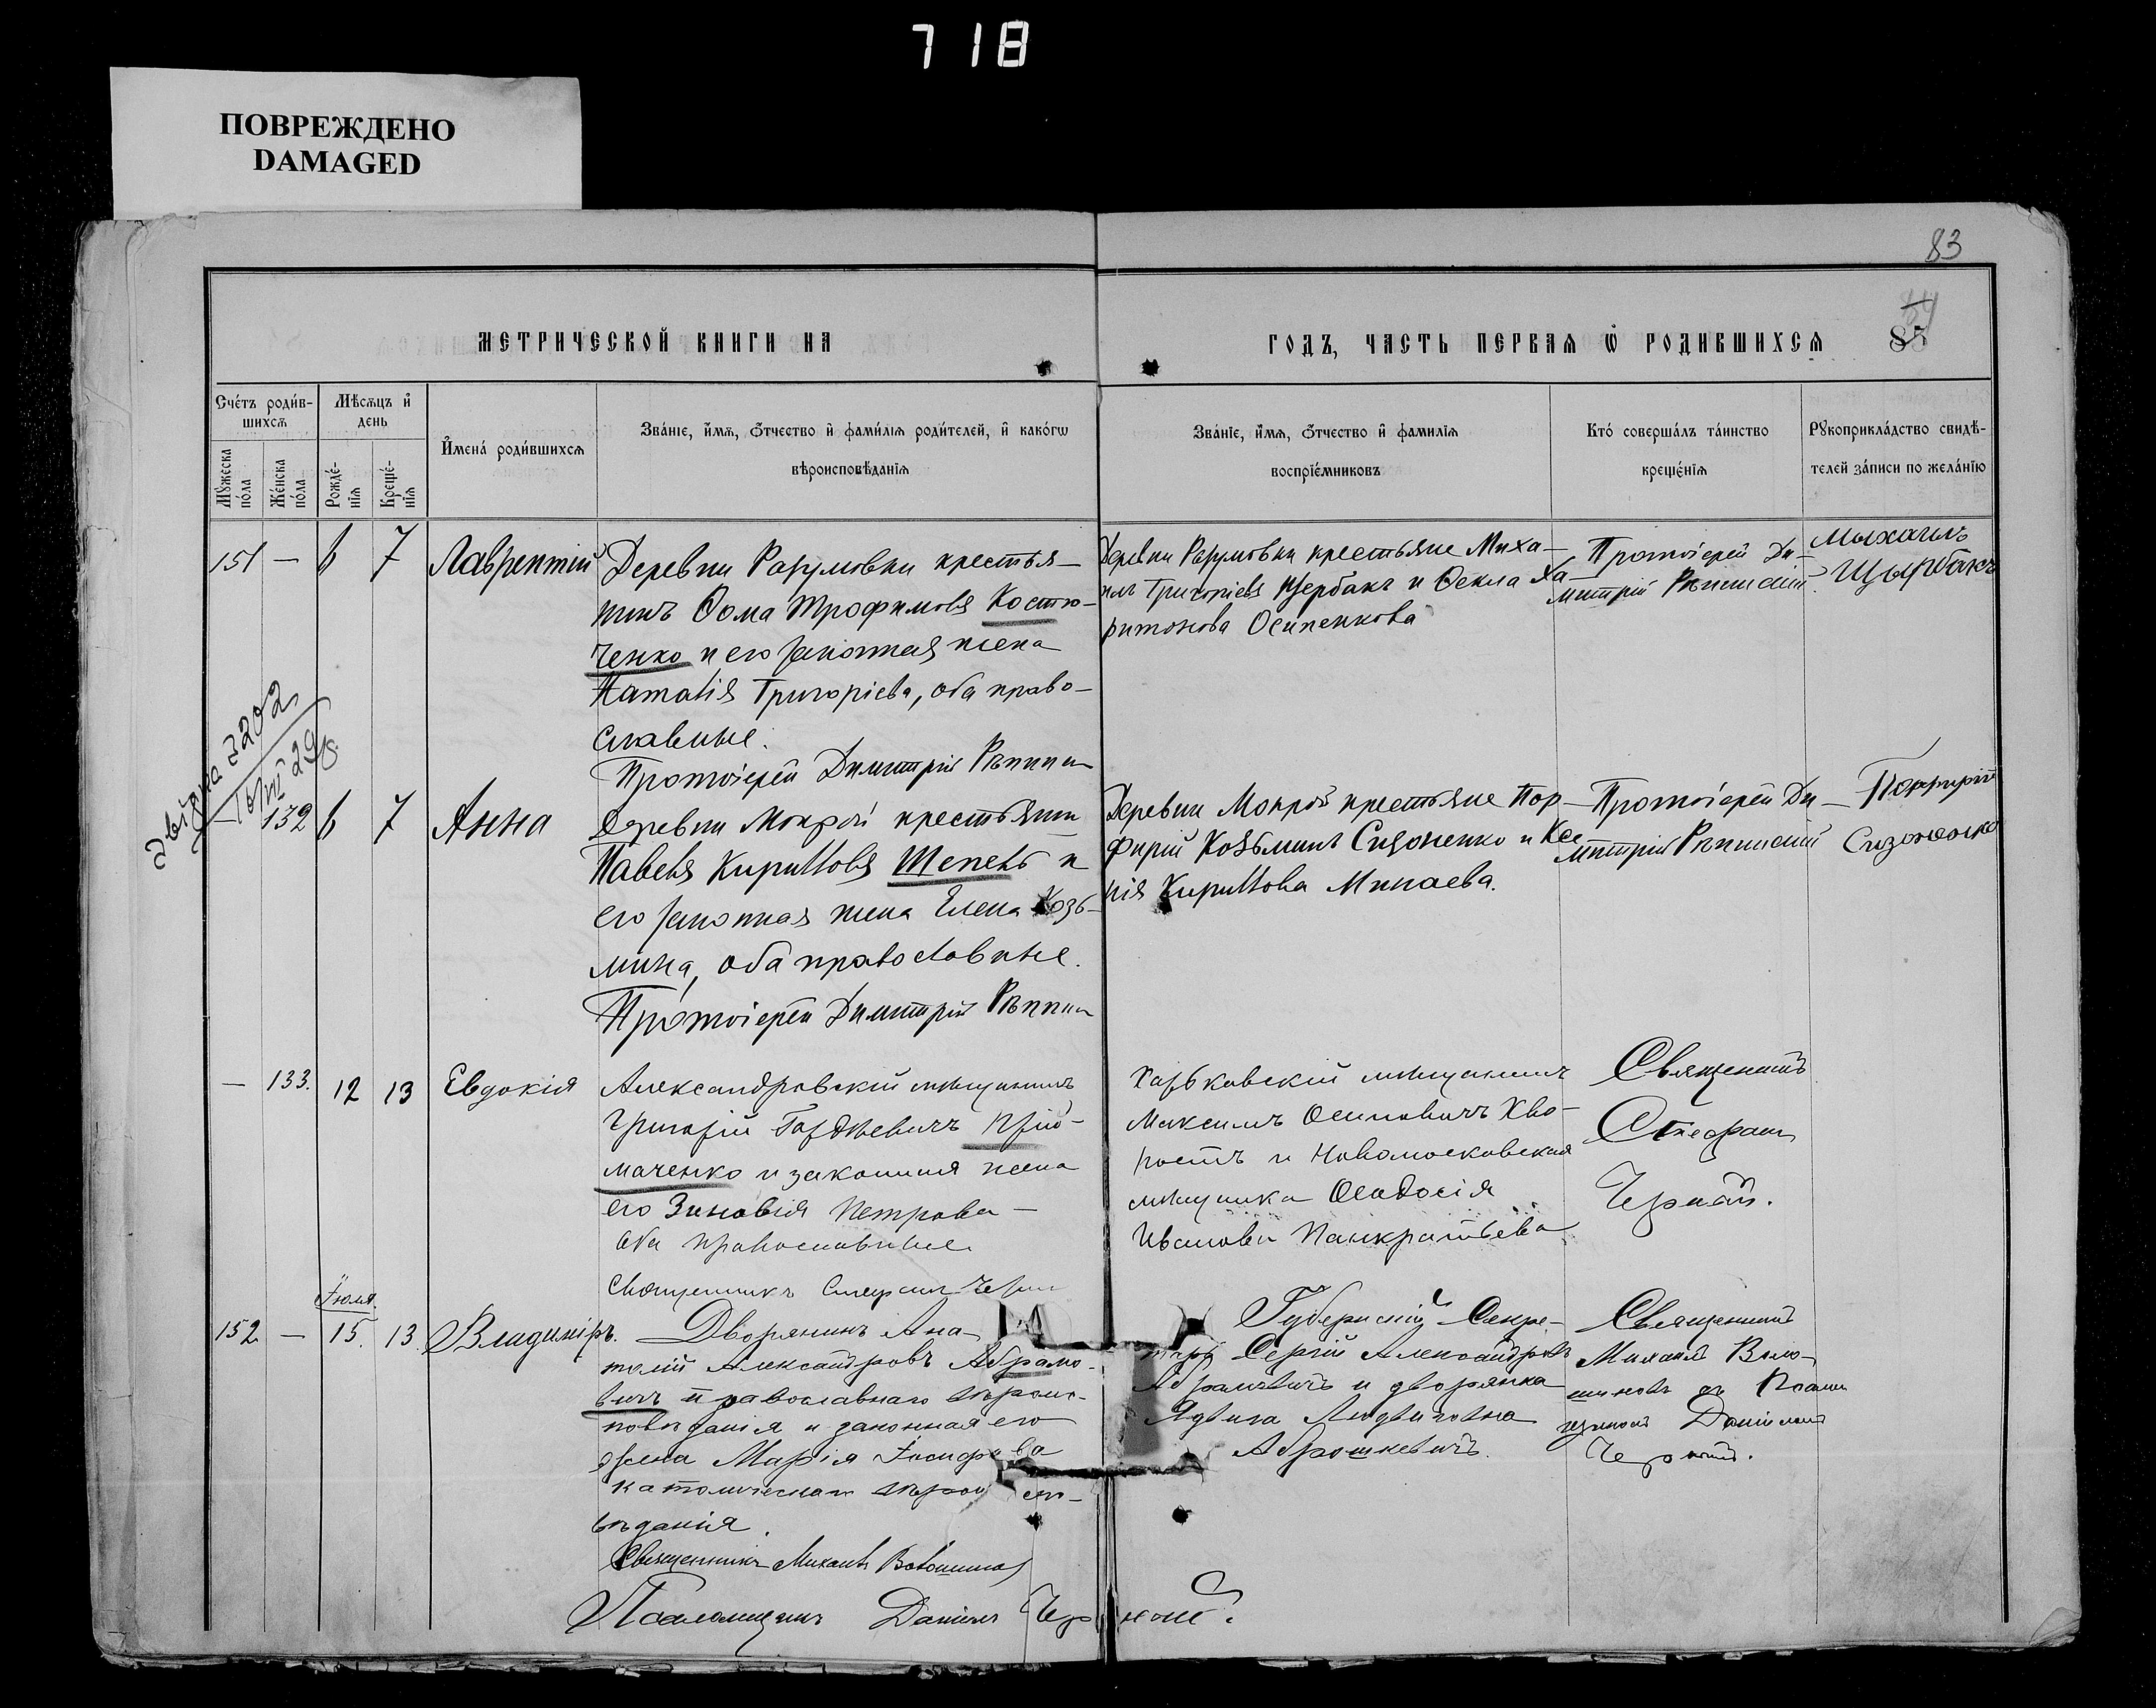 718
ПОВРЕЖДЕНО
DAMAGED
83
МЕТРИЧЕСКОЙ КНИГИ НА
ГОДЪ, ЧАСТЬ ПЕРВАЯ Ѡ РОДИВШИХСѦ
Сче́тъ роди́в-
шихсѧ
Мѣсѧцъ и҆
день
Мꙋ́жеска
по́ла
Же́нска
по́ла
Рожде́-
нїѧ
Креще́-
нїѧ
И҆мена́ роди́вшихсѧ
Зва́нїе, и҆́мѧ, ѻ҆́тчество и҆ фами́лїѧ роди́телей, и҆ како́гѡ
вѣроисповѣ́данїѧ
Зва́нїе, и҆́мѧ, ѻ҆́тчество и҆ фамилїѧ
воспрїе́мниковъ
Кто́ соверша́лъ та́инство
креще́нїѧ
Рꙋкоприкла́дство свидѣ́-
телей за́писи по жела́нїю
151 — 6 7 Лаврентій
Деревни Разумовки крестья-
нинъ Ѳома Трофимовъ Костю-
ченко и его законная жена
Наталія Григоріева, оба право-
славные.
Протоіерей Димитрій Рѣпнин
Деревни Разумовки крестьяне Миха-
илъ Григоріевъ Щербакъ и Ѳекла Ха-
ритонова Осипенкова
Протоіерей Ди-
митрій Рѣпинскій
Мыхаилъ
Щырбакъ
132 6 7 Анна
Деревни Мокрой крестьянин
Павелъ Кирилловъ Шепель и
его законная жена Елена Козь-
мина, оба православные.
Протоіерей Димитрій Рѣпнин
Деревни Мокрой крестьяне Пор-
фирій Козьминъ Сизоненко и Ксе
нія Кириллова Минаева.
Протоіерей Ди-
митрій Рѣпинскій
Порфирій
Сизоненко
— 133. 12 13 Евдокія
Александровскій мѣщанинъ
Григорій Гордѣевичъ Прій-
маченко и законная жена
его Зиновія Петрова —
оба православные
Священникъ Стефан Черн
Харьковскій мѣщанинъ
Максимъ Осиповичъ Хво-
ростъ и Новомосковская
мѣщанка Ѳеодосія
Иванова Панкратьева
Священникъ
Стефанъ
Черный.
Іюля.
152 — 15. 13 Владиміръ.
Дворянинъ Ана-
толій Александровъ Абрамо-
вичъ православнаго вѣроис-
повѣданія и законная его
жена Марія Іосифова
католическаго вѣроиспо-
вѣданія.
Священникъ Михаилъ Волошинов
Псаломщикъ Даніилъ Черный.
Губернскій Секре-
тарь Сергій Александровъ
и дворянка
Ядвига Людвиговна
Священникъ
Михаилъ Воло-
шиновъ съ Псалом
щикомъ Даніиломъ
Чернымъ.